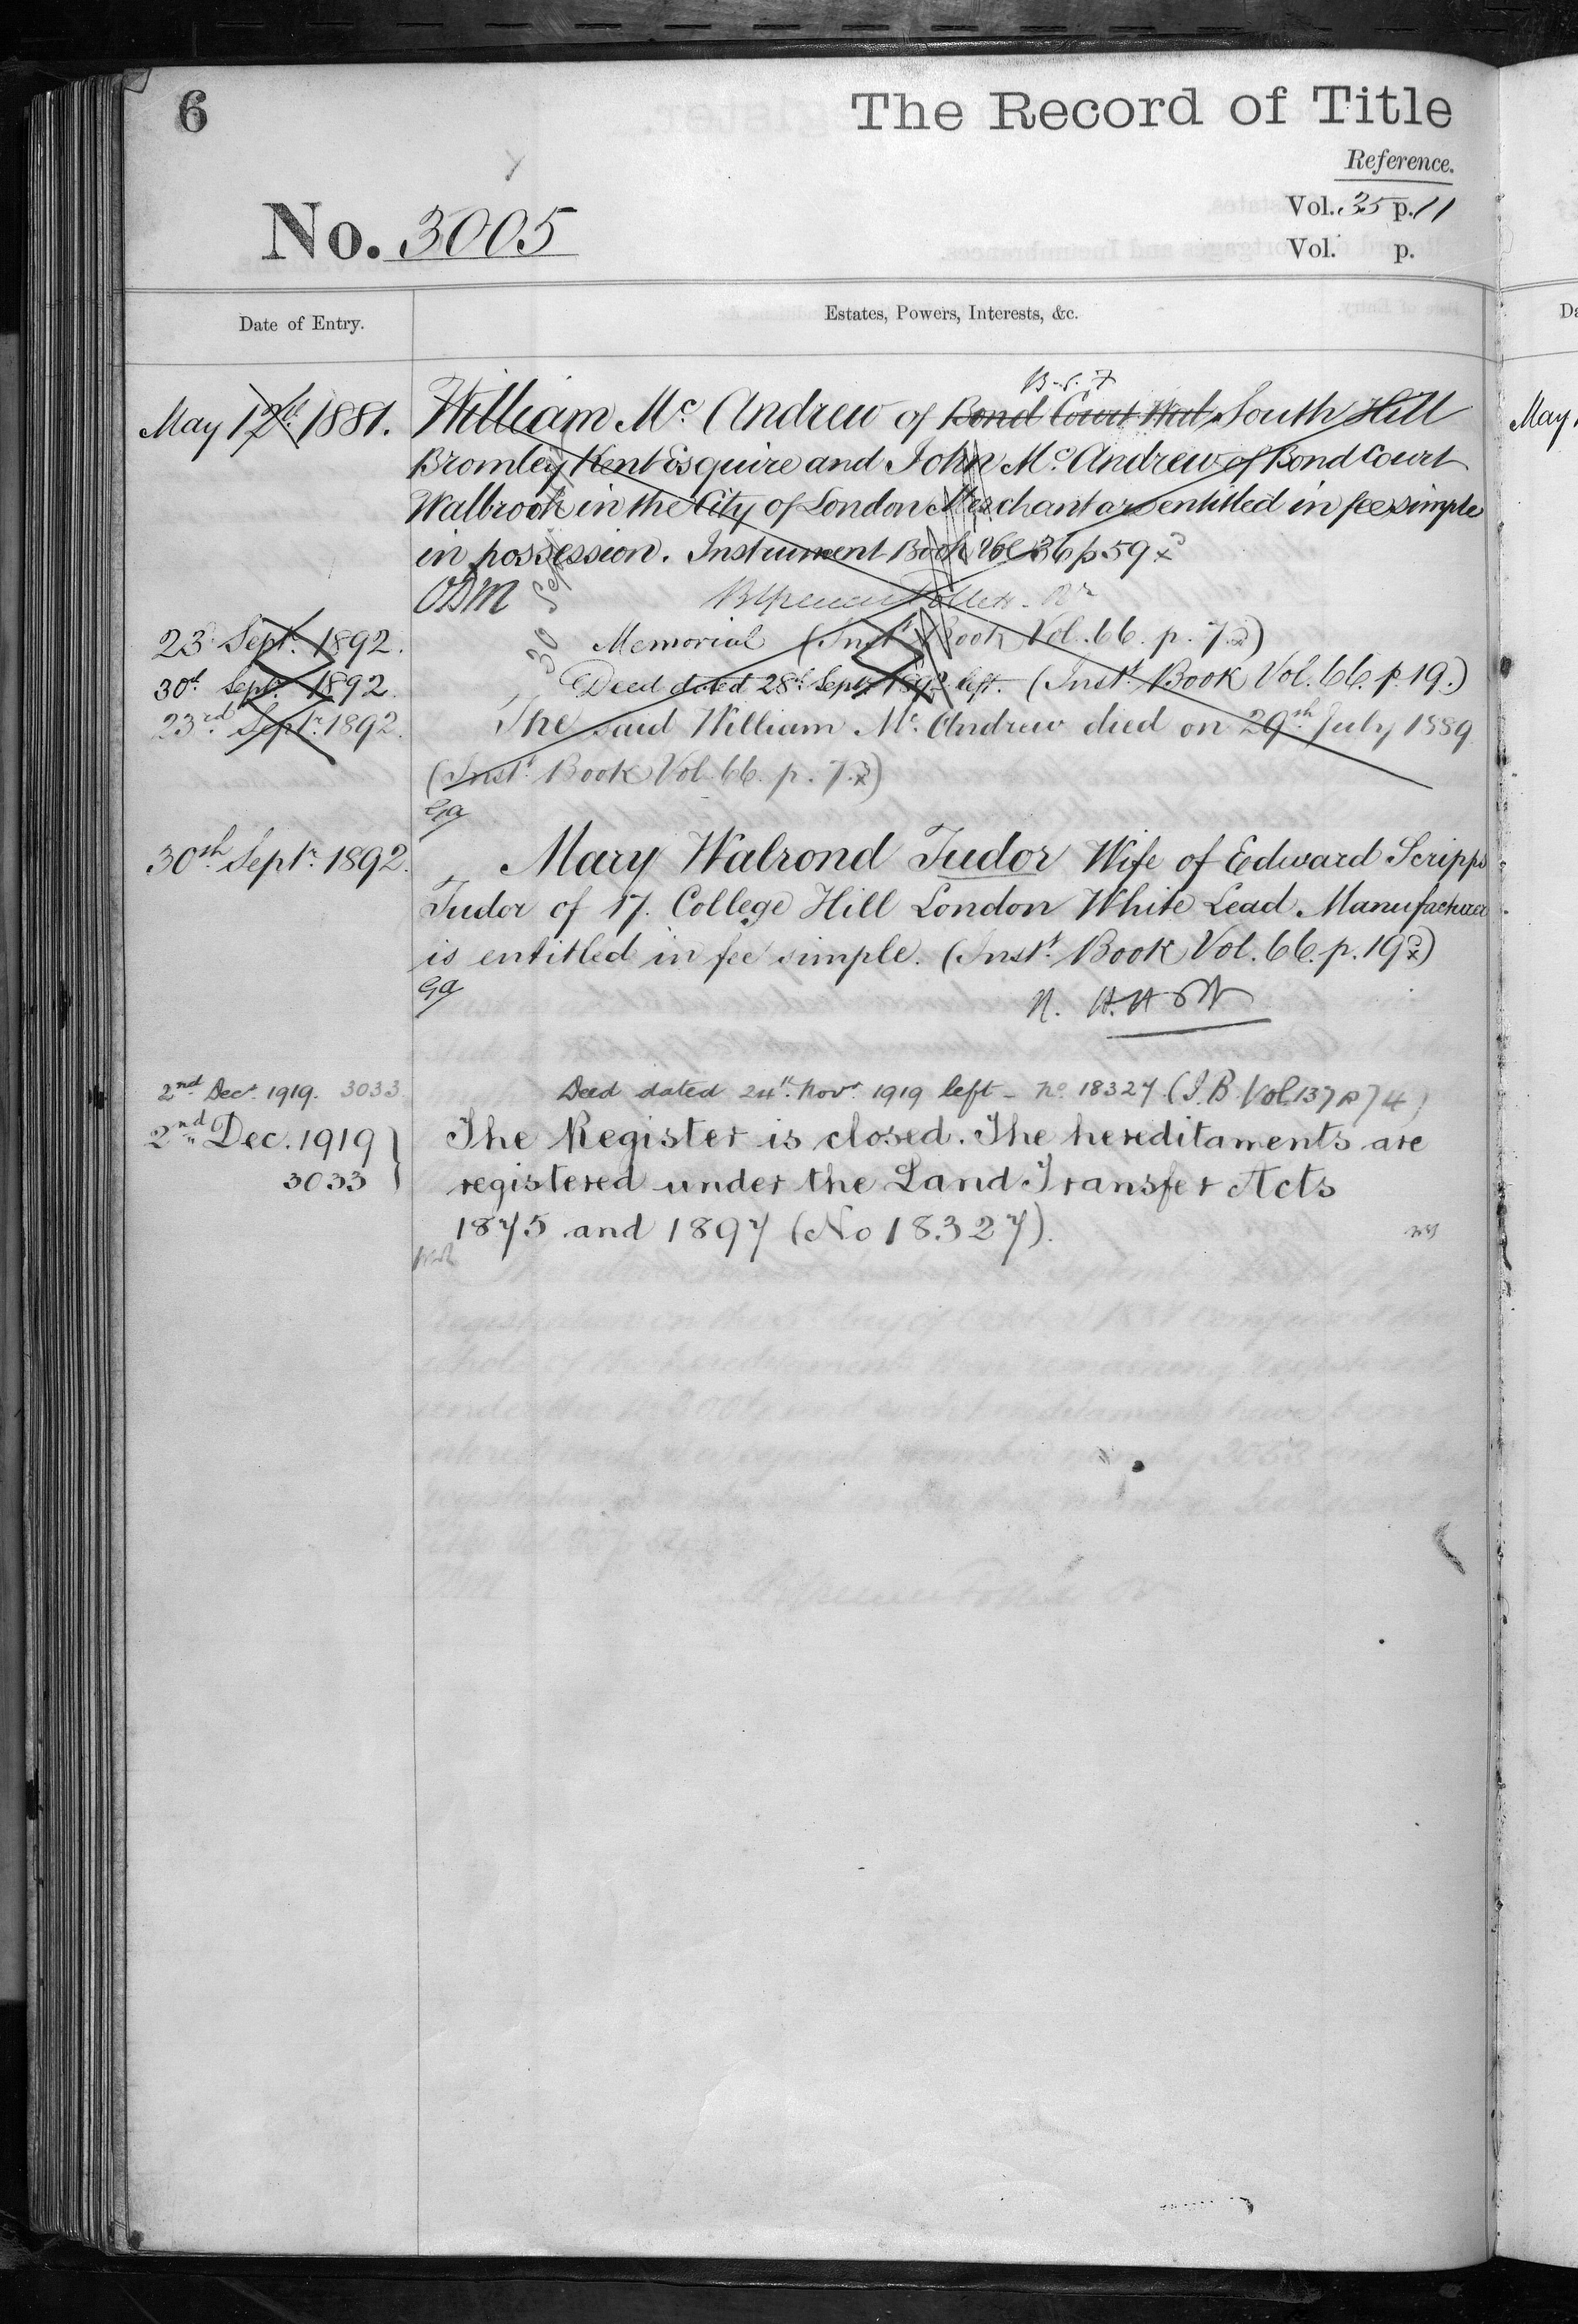 6
The Record of Title
Reference.
Vol. 35 p. 11
No. 3005
Vol. p.
Date of Entry.
Estates, Powers, Interests, &c.
B.S.F
May 12th 1881. William Mc Andrew of Bond Court Wal South Hill
Bromley Kent Esquire and John Mc Andrew of Bond Court
Walbrook in the City of London Merchant are entitled in fee simple
in possession. Instrument Book Vol 36 p 59
ODM
30 Sept
23d Septr. 1892. Memorial (Instt. Book Vol. 66. p. 7.)
30th Septr. 1892. Deed dated 28th Septr 1892 left. (Instt. Book Vol. 66. p. 19.)
23rd Septr. 1892. The said William Mc. Andrew died on 29th July 1889
(Instt. Book Vol. 66. p. 7.)
Ga
30th Septr. 1892. Mary Walrond Tudor Wife of Edward Scripps
Tudor of 17. College Hill London White Lead Manufacturer
is entitled in fee simple. (Instt. Book Vol. 66. p. 19)
Ga
2nd Decr. 1919. 3033. Deed dated 24th. Novr. 1919 left - No. 18327 (I.B. Vol. 137 p 74)
2nd Dec. 1919 The Register is closed. The hereditaments are
3033 registered under the Land Transfer Acts
1875 and 1897 (No 18327).
May